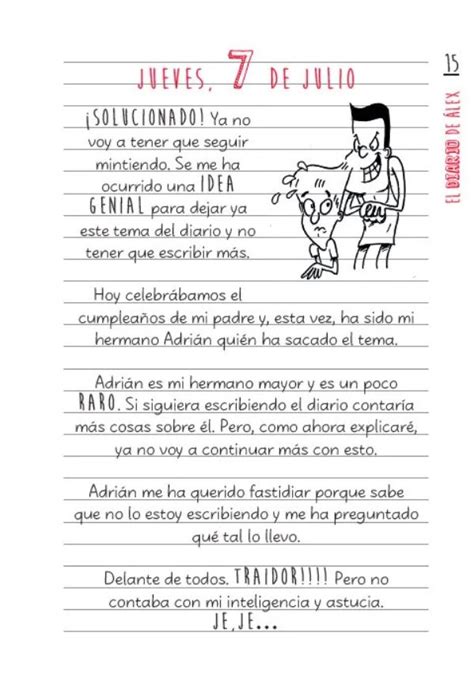 15
EL DIARIO DE ÁLEX
JUEVES, 7 DE JULIO
¡SOLUCIONADO! Ya no
voy a tener que seguir
mintiendo. Se me ha
ocurrido una IDEA
GENIAL para dejar ya
este tema del diario y no
tener que escribir más.
Hoy celebrábamos el
cumpleaños de mi padre y, esta vez, ha sido mi
hermano Adrián quién ha sacado el tema.
Adrián es mi hermano mayor y es un poco
RARO. Si siguiera escribiendo el diario contaría
más cosas sobre él. Pero, como ahora explicaré,
ya no voy a continuar más con esto.
Adrián me ha querido fastidiar porque sabe
que no lo estoy escribiendo y me ha preguntado
qué tal lo llevo.
Delante de todos. TRAIDOR!!!! Pero no
contaba con mi inteligencia y astucia.
JE,JE...